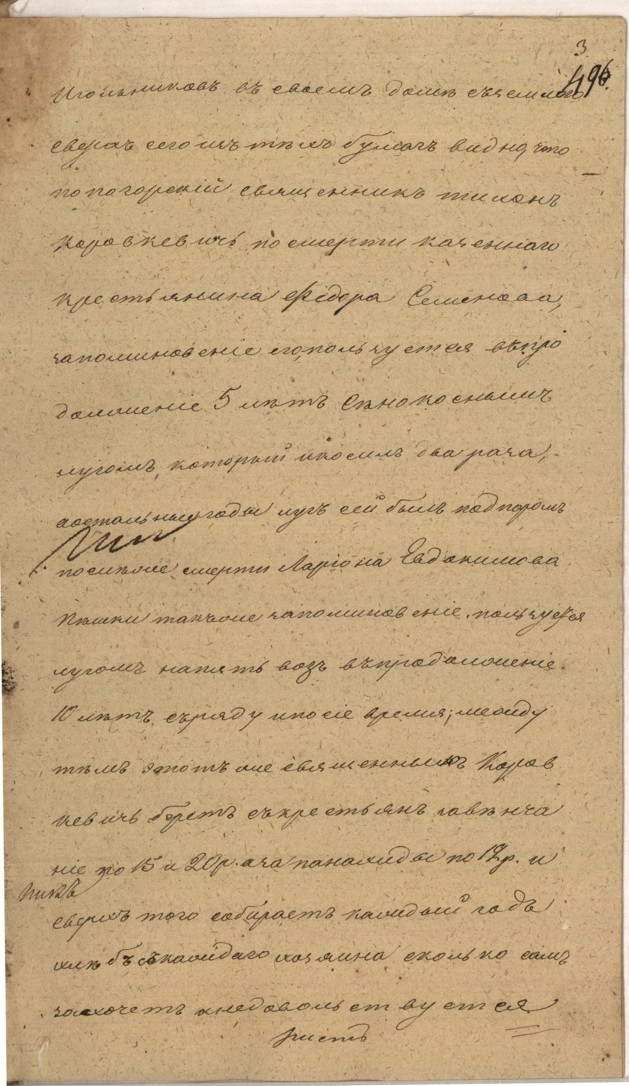 3
496.
Игольниковъ въ своемъ доме съ семьею
сверхъ сего изъ техъ бумагъ видно, что
попогорскій священникъ тимонъ
Коровкевичь по смерти казеннаго
крестьянина Федора Семенова,
запоминовеніе его, пользуется въ про
должение 5 летъ сенокоснымъ
лугомъ, который и косилъ два раза,
а остальные годы лугъ сей былъ подпоромъ
после же смерти Ларіона Евдокимова
также запоминовеніе, пользуется
лугомъ на пять возъ въ продолжение
10 летъ съряду и по сіе время, между
темъ этотъ же священникъ Коров
кевичь беретъ съ крестьянъ за венча
ніе по 15 и 20 р. а за панахиды по 12 р. и
сверхъ того собираетъ каждый годъ
хлебъ съ каждаго хозяина сколько самъ
захочетъ и недовольствуется